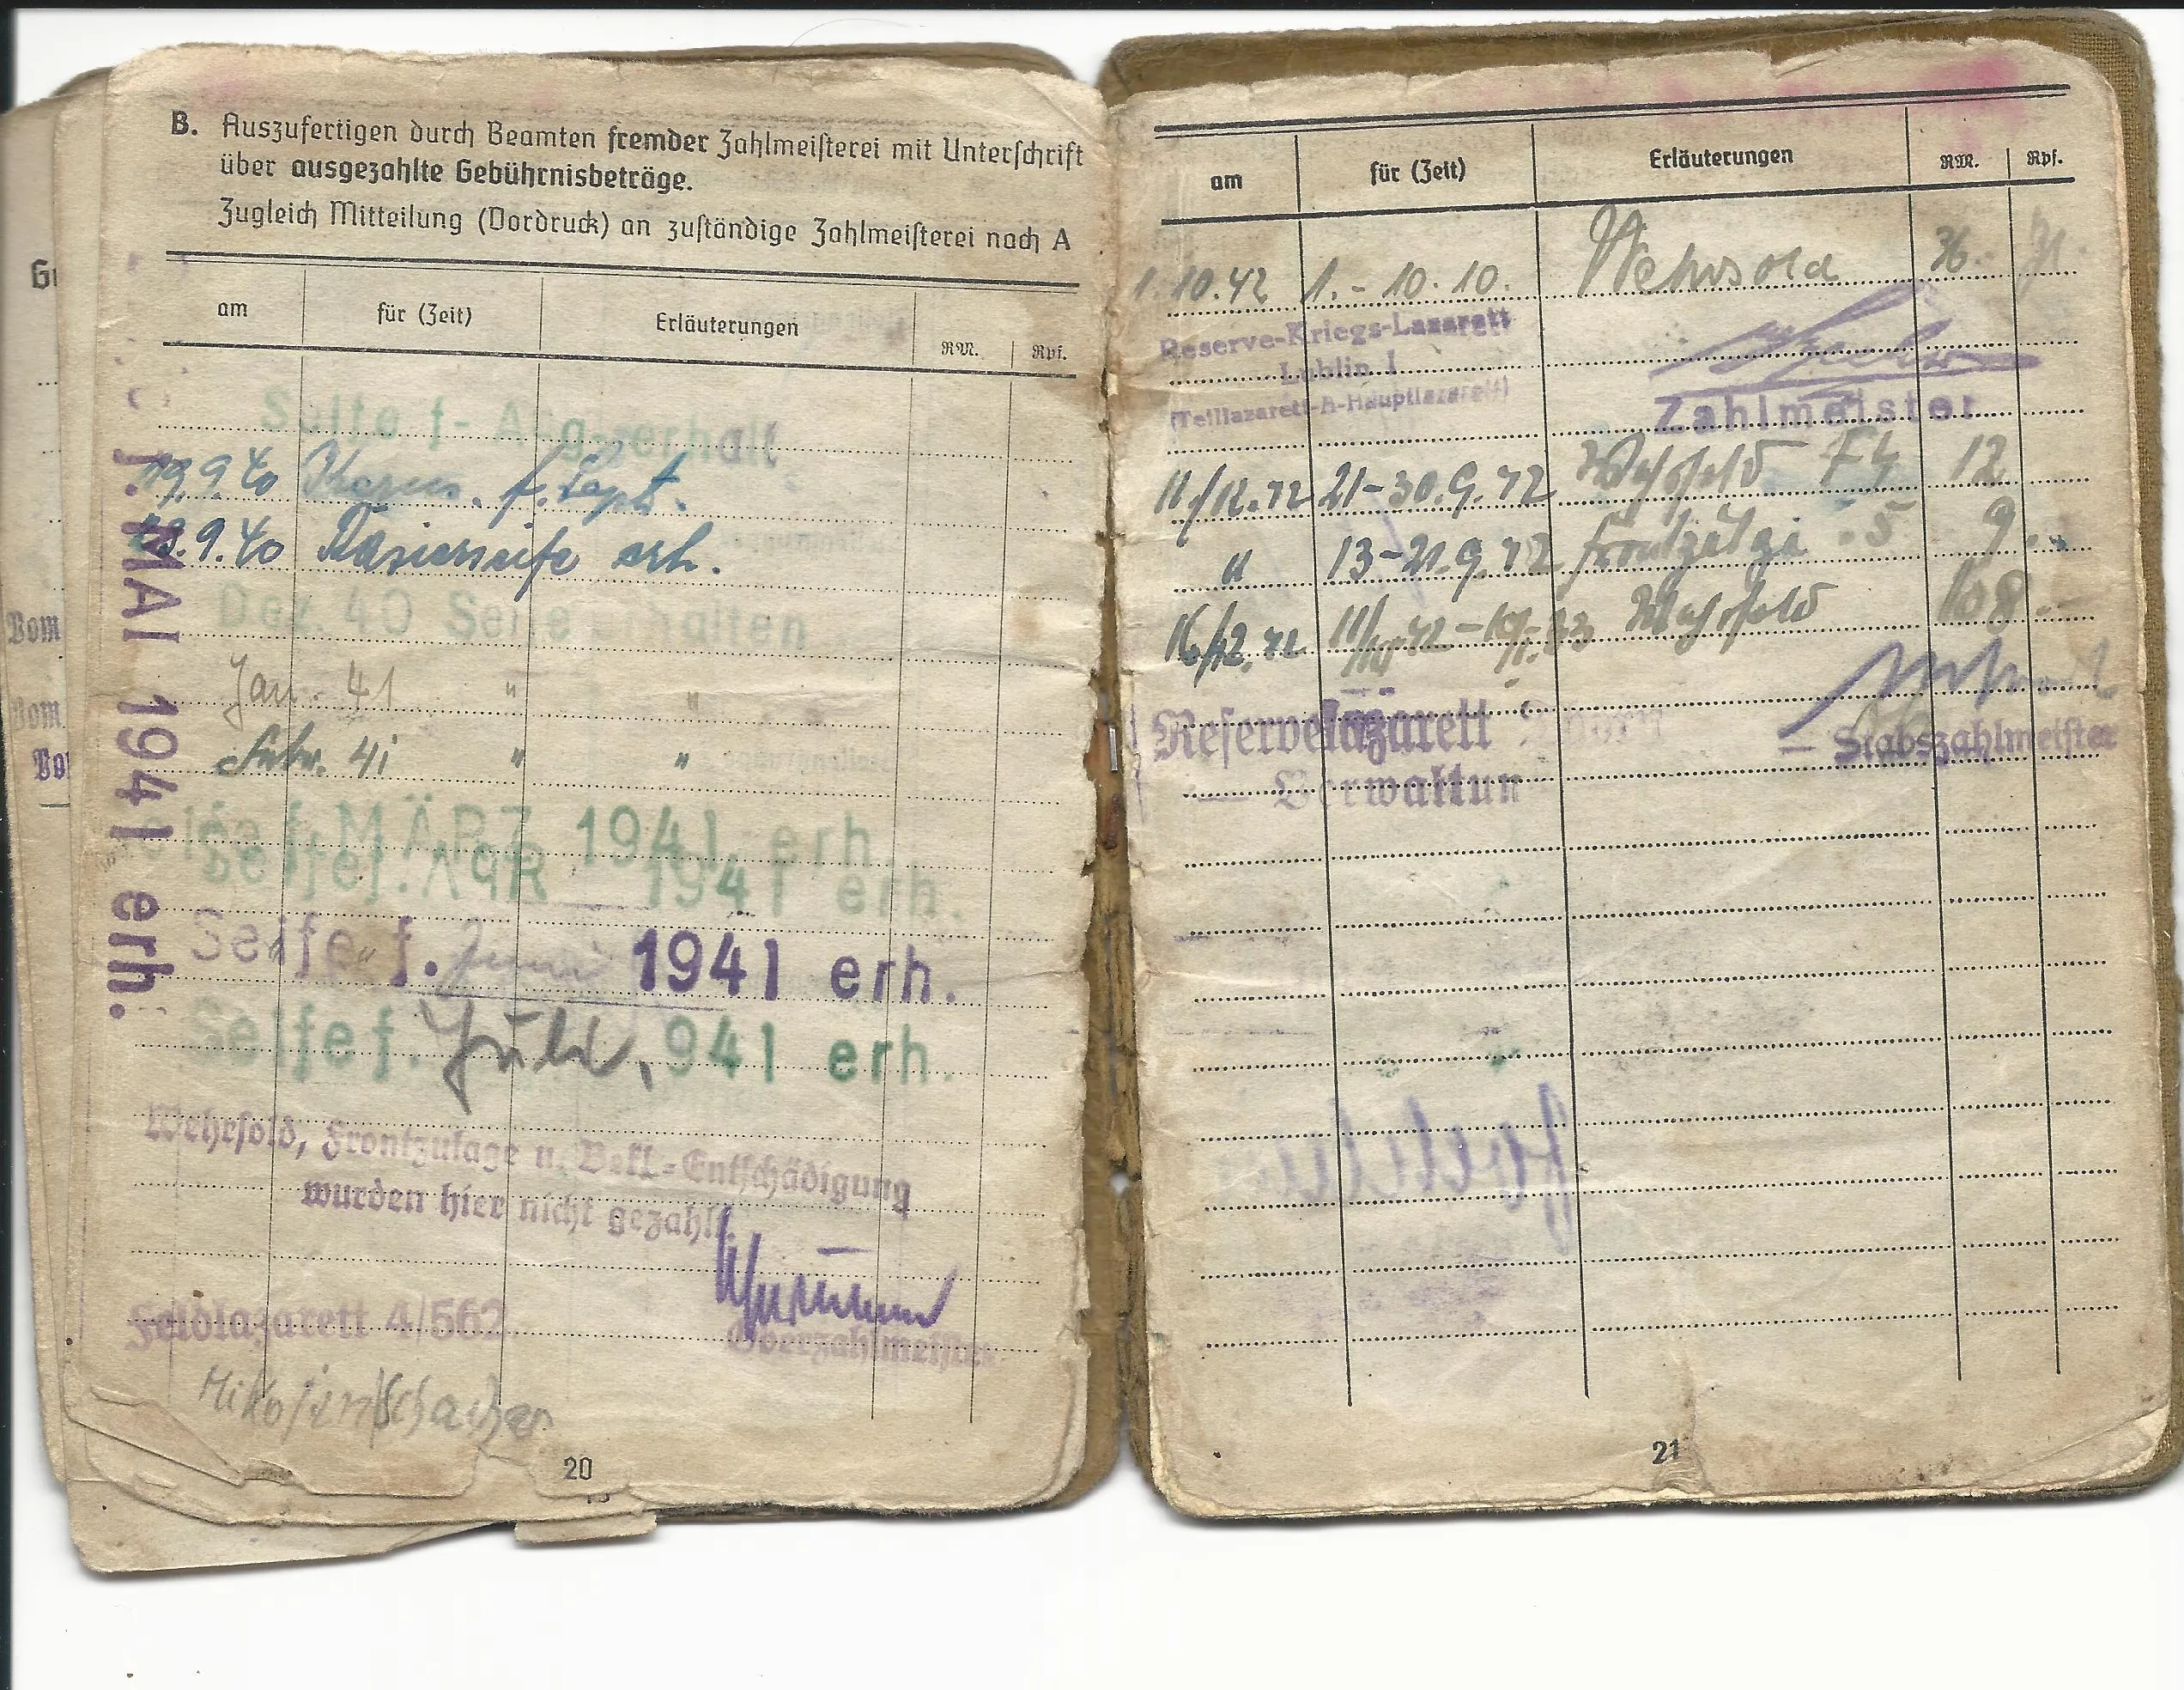 B. Auszufertigen durch Beamten fremder Zahlmeisterei mit Unterschrift
über ausgezahlte Gebührnisbeträge.
Zugleich Mitteilung (Vordruck) an zuständige Zahlmeisterei nach A
am für (Zeit) Erläuterungen RM. Rpf.
Seife f. Aug. erhalt
19.9.40 f. Sept.
.9.40 Rasierseife erh.
Dez. 40 Seife erhalten
Jan. 41 " "
Febr. 41 " "
Seife f. MÄRZ 1941 erh.
Seife f. APR 1941 erh.
f. MAI 1941 erh.
Seife f. Juni 1941 erh.
Seife f. Juli 1941 erh.
Wehrsold, Frontzulage u. Bekl.-Entschädigung
wurden hier nicht gezahlt.
Feldlazarett 4/562
Oberzahlmeister
20
am für (Zeit) Erläuterungen RM. Rpf.
1.10.42 1.-10.10. Wehrsold 36.-
Reserve-Kriegs-Lazarett
Lublin I
(Teillazarett-A-Hauptlazarett)
Zahlmeister
11/12.42 21-30.9.42 Wehrsold 12
" 13-21.9.42 9.-
16/12.42 Wehrsold 108.-
Reservelazarett Thorn
Verwaltung
Stabszahlmeister
21